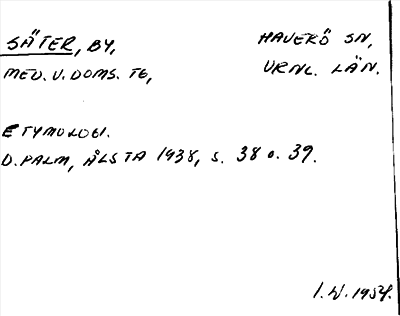 SÄTER, BY, HAVERÖ SN,
MED. V. DOMS. TG, VRNL. LÄN.
ETYMOLOGI.
D. PALM, ÅLSTA 1938, s. 38 o. 39.
I. W. 1954.